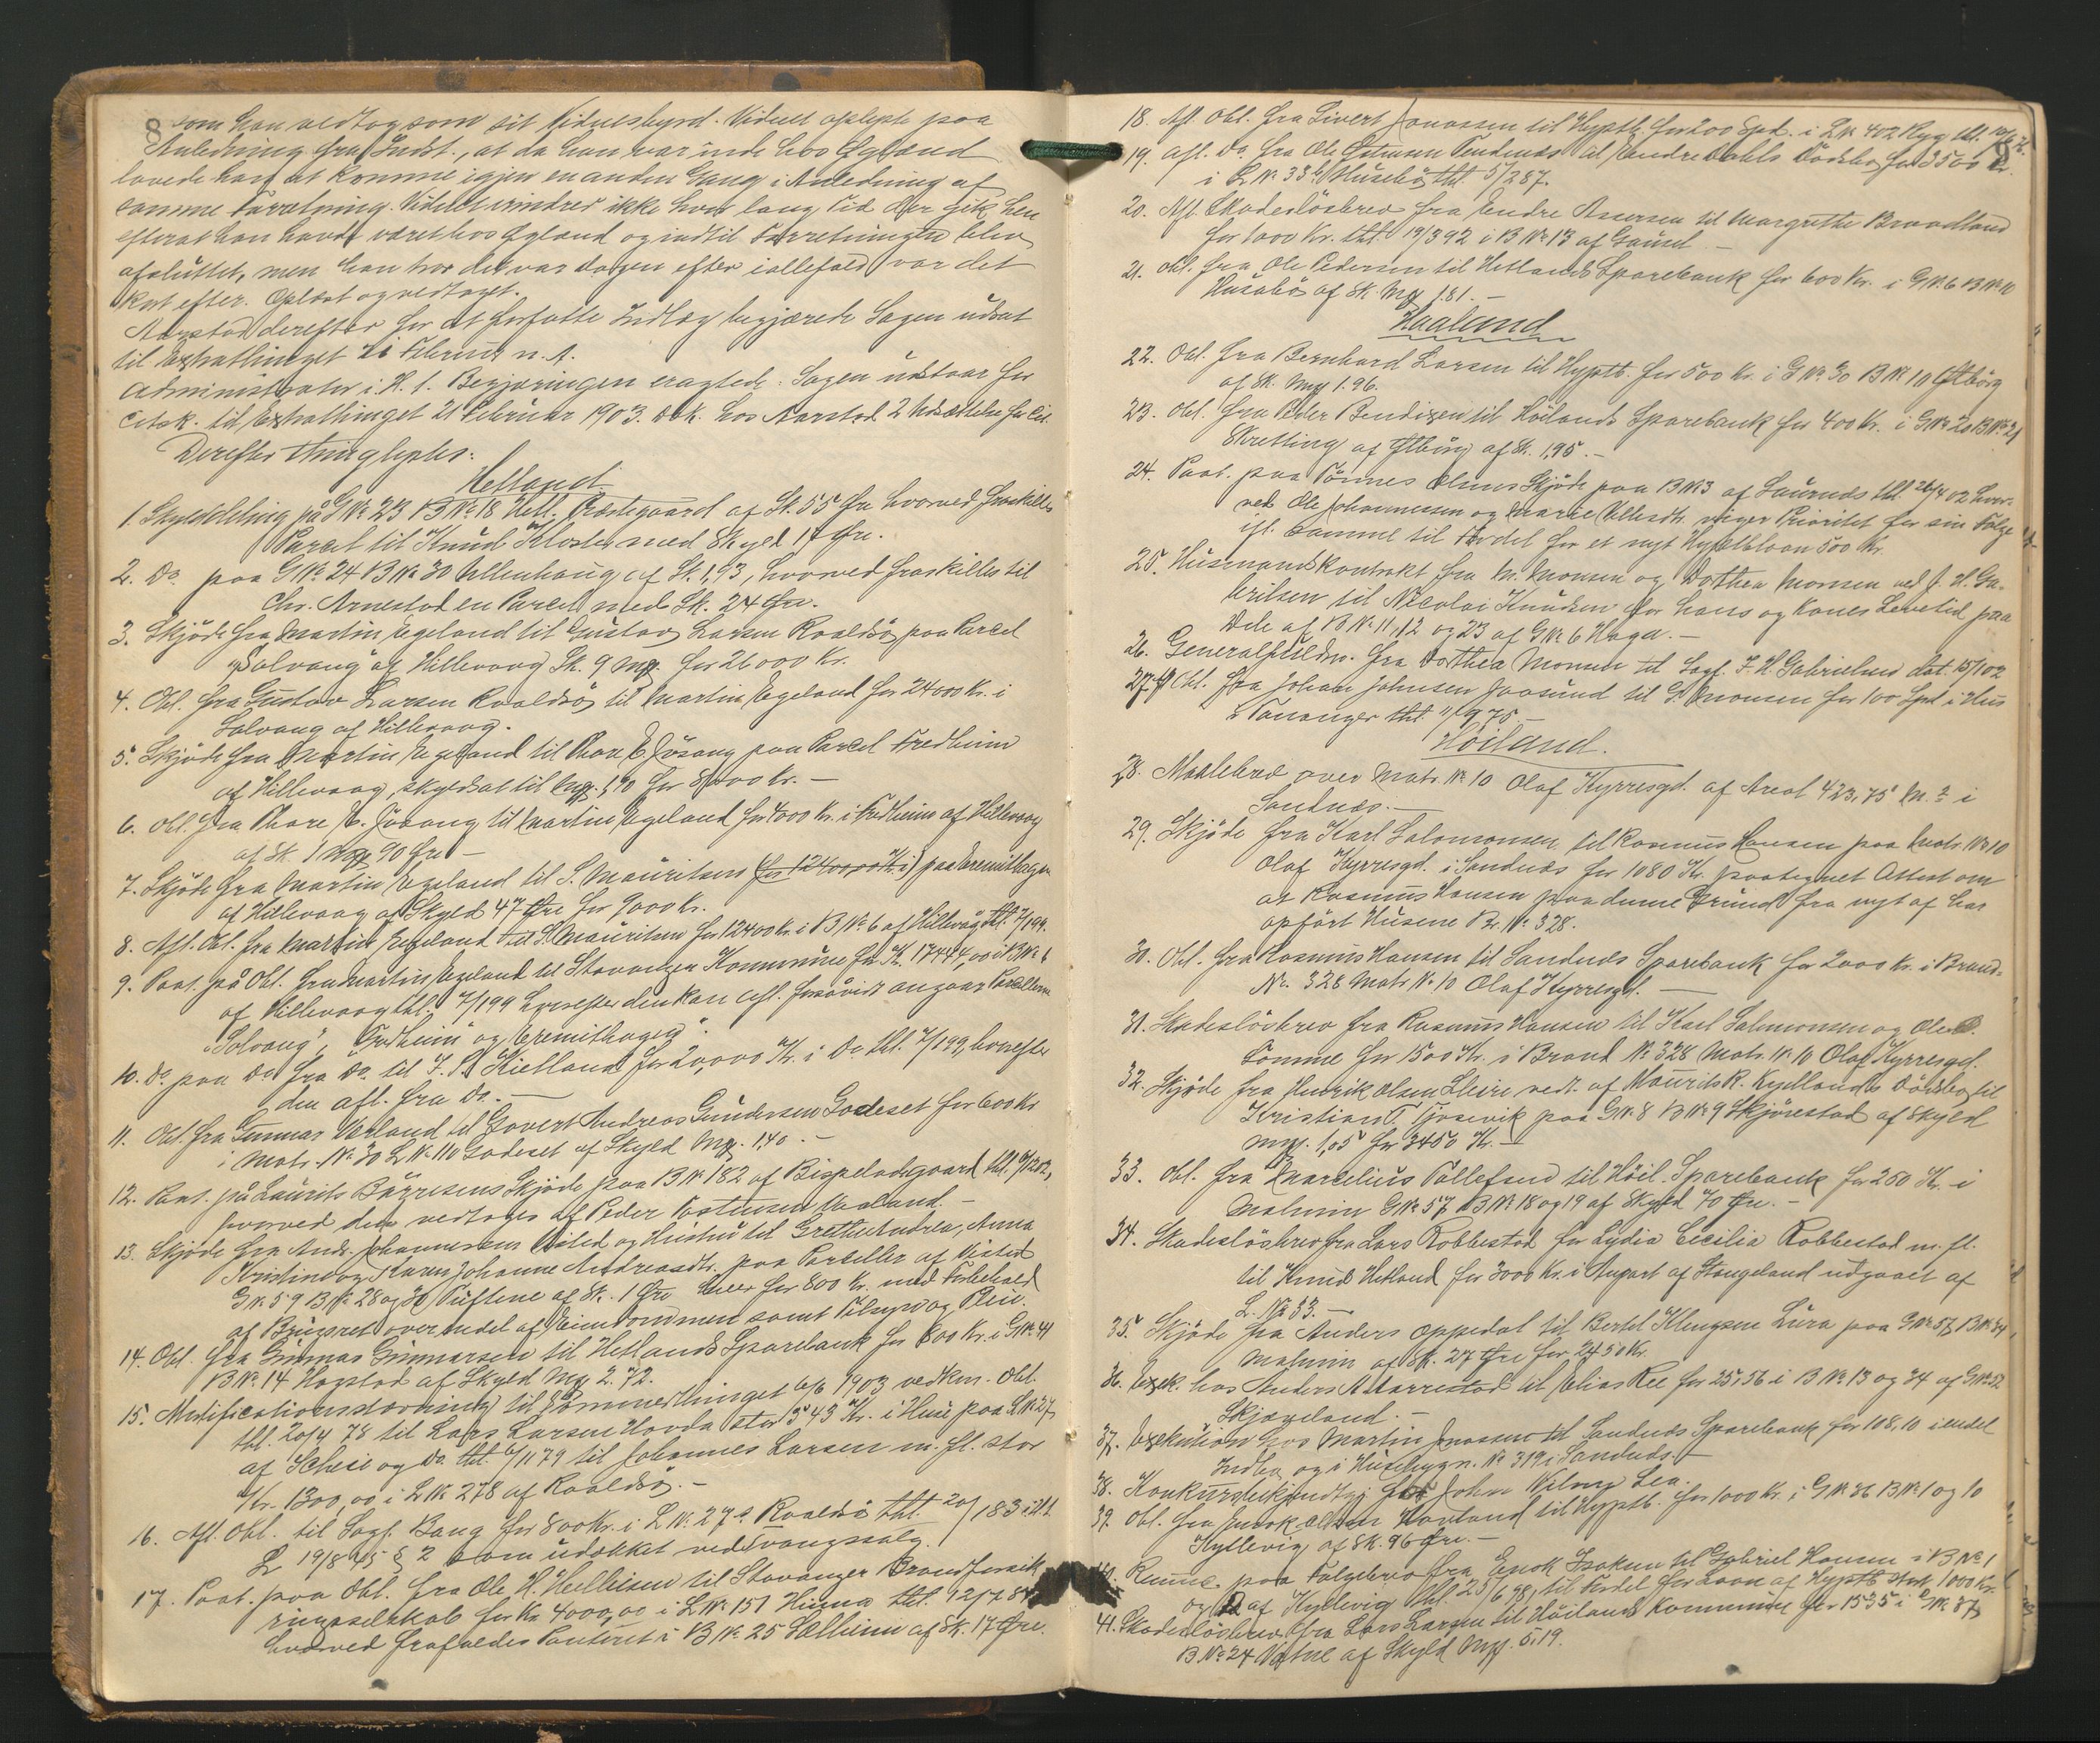 8 som han vedtog som sit Vidnesbyrd. Vidnet oplyste paa
Anledning fra Indst., at da han var inde hos Egeland
lovede han at komme igjen en anden Gang i Anledning af
samme Forretning. Vidnet erindrer ikke hvor lang Tid der gik hen
efterat han havde været hos Egeland og indtil Forretningen blev
afsluttet, men han tror det var Dagen efter iallefald var det
kort efter. Oplæst og vedtaget.
Aarstad derefter for at forfatte Indlæg begjærede Sagen udsat
til Extrathinget 21 Februar n. A.
Administrator i. H. t. Begjæringen eragtede: Sagen udstaar for
Citsk. til Extrathinget 21 Februar 1903. Dok. hos Aarstad 2 Udsættelse for Cit.
Derefter thinglystes:
Hetland
1. Skylddeling på G No 23 B No 18 Hetl. Præstegaard af Sk. 55 Øre hvorved fraskilles
Parcel til Knud Kloster med Skyld 17 Øre.
2. Do. paa G No 24 B No 30 Ullenhaug af Sk. 1,93, hvorved fraskilles til
Chr. Arnestad en Parcel med Sk. 24 Øre.
3. Skjøde fra Martin Egeland til Gustav Larsen Roaldsø paa Parcel
"Solvang" af Hillevaag Sk. 9 Mrk. for 26000 Kr.
4. Obl. fra Gustav Larsen Roaldsø til Martin Egeland for 24000 Kr. i
Solvang af Hillevaag.
5. Skjøde fra Martin Egeland til Thore E. Jøsang paa Parcel Fredheim
af Hillevaag, skyldsat til Mrk. 1,90 for 8000 Kr. —
6. Obl. fra Thore E. Jøsang til Martin Egeland for 4000 Kr. i Fredheim af Hillevaag
af Sk. 1 Mrk 90 Øre —
7. Skjøde fra Martin Egeland til S. Mauritsen (for 12400,00 Kr. i) paa Eremithagen
af Hillevaag af Skyld 47 Øre for 9000 Kr.
8. Afl. Obl. fra Martin Egeland til S. Mauritsen for 12400 Kr. i B No 6 af Hillevåg tht. 7/199.
9. Paat. på Obl. fra Martin Egeland til Stavanger Kommune for Kr. 17444,00 i B No 6
af Hillevaag tht. 7/199 hvorefter den kan afl. forsåvidt angaar Parcellerne
"Solvang", "Fredheim" og "Eremithagen".
10. Do. paa Do. fra Do. til J. S. Kielland for 20,000 Kr. i Do tht. 7/199, hvorefter
den afl. fra Do. —
11. Obl. fra Gunnar Veland til Govert Andreas Gundersen Godeset for 600 Kr
i Matr. No 30 L No 110 Godeset af Skyld Mrk. 1,40. —
12. Paat. på Laurits Børresens Skjøde paa B No 182 af Bispeladegaard
hvorved den vedtages af Peder Vaaland. —
13. Skjøde fra Andr. Johannesen Visted og Hustru til Grethe Andrea, Anna
Kristine og Karen Johanne Andreasdtr. paa Parceller af Visted
G No 59 B No 28 og 30 Tuftene af Sk. 1 Øre hver for 800 Kr. med Forbehold
af Brugsret over endel af Eiendommen samt Tilsyn og Pleie.
14. Obl. fra Gunnar Gunnarsen til Hetlands Sparebank for 800 Kr. i G No 41
B No 14 Hogstad af Skyld Mrk 2.72.
15. Mortificationsstævning til Sommerthinget 6/6 1903 vedkm. Obl.
tht. 20/4 78 til Lars Larsen Hovda stor 343 Kr. i Huse paa L No 27
af Scheie og Do. tht. 6/11 79 til Johannes Larsen m. fl. stor
Kr. 1300,00 i L No 278 af Roaldsø. —
16. Afl. Obl. til Sagf. Bang for 800 Kr. i L No 27 a Roaldsø tht. 20/183 i. H. t.
L 19/8 45 § 2 som udækket ved Tvangssalg.
17. Paat. paa Obl. fra Ole H. Helliesen til Stavanger Brandforsik-
ringsselskab for Kr. 4000,00 i L No 151 Hinna tht. 12/7 84
hvorved frafaldes Panteret i B No 25 Solheim af Sk. 17 Øre.
18. Afl. Obl. fra Sivert Jonassen til Hyptb. for 200 Spd. i L No 402 tht.
19. Afl. Do. fra Ole til Endre Dahls Dødsbo for 3500 Kr.
i L No 334 Husebø tht. 5/287.
20. Afl. Skadesløsbrev fra Endre Assersen til Margrethe Braadland
for 1000 Kr. tht. 19/392 i B No 13 af Gausel —
21. Obl. fra Ole Pedersen til Hetlands Sparebank for 600 Kr. i G No 6 B No 10
Husabø af Sk. Mrk 1.81. —
Haaland
22. Obl. fra Bernhard Larsen til Hyptb. for 500 Kr. i G No 30 B No 10 Østbørg
af Sk. Mrk 1.96.
23. Obl. fra Peder Bendixen til Høilands Sparebank for 400 Kr. i G No 20 B No 21
Skretting af Østbørg af Sk. 1,95. —
24. Paat. paa Tønnes Olsens Skjøde paa B No 3 af Saurnes tht. 26/4 02 hvor-
ved Ole Johannessen og Marie Ellesdtr. viger Prioritet for sin Følge
ifl. samme til Fordel for et nyt Hyptblaan 500 Kr.
25. Husmandskontrakt fra M. Monsen og Dorthea Monsen ved J. H. Ga-
brielsen til Nicolai Knudsen for hans og Kones Levetid paa
Dele af B No 11, 12 og 23 af G No 6 Haga. —
26. Generalfuldm. fra Dorthea Monsen til Sagf. J. H. Gabrielsen dat. 15/1 02
27. Afl. Obl. fra Johan Johnsen Jaasund til P. Monsen for 100 Spd i Hus
i Tananger tht. 11/9 75 —
Høiland.
28. Maalebrev over Matr. No 10 Olaf Kyrresgd. af Areal 423,75 M.2 i
Sandnæs. —
29. Skjøde fra Karl Salomonsen til Rasmus Hansen paa Matr. No 10
Olaf Kyrresgd. i Sandnæs for 1080 Kr. paategnet Attest om
at Rasmus Hansen paa denne Grund fra nyt af har
opført Husene Br. No 328.
30. Obl. fra Rasmus Hansen til Sandnæs Sparebank for 2000 Kr. i Brand-
No. 328 Matr. No 10 Olaf Kyrresgd. —
31. Skadesløsbrev fra Rasmus Hansen til Karl Salomonsen og Ole D.
Tomme for 1500 Kr. i Brand No 328 Matr. No 10 Olaf Kyrresgd.
32. Skjøde fra Henrik Olsen Lleire vedt. af Maurits R. Kyllands Dødsbo til
Kristian T. Tjosevik paa G No 8 B No 9 Skjørestad af Skyld
Mrk. 1,05 for 3450 Kr. —
33. Obl. fra Marcelius Tollefsen til Høil. Sparebank for 250 Kr. i
Malmin G No 57 B No 18 og 19 af Skyld 70 Øre. —
34. Skadesløsbrev fra Lars Robbestad for Lydia Cecilia Robbestad m. fl.
til Knud Hetland for 3000 Kr. i Anpart af Stangeland udgaaet af
L. No 33. —
35. Skjøde fra Anders Oppedal til Bertel Klungsen Lura paa G No 57 B No 24
Malmin af Sk. 27 Øre for 2450 Kr.
36. Exek. hos Anders A. Harrestad til Elias Ree for 257,56 i B No 13 og 34 af G No 52
Skjæveland. —
37. Exekution hos Martin Jonassen til Sandnæs Sparebank for 108,10 i endel
Indbo og i Husebygn. No 319 i Sandnæs. —
38. Konkursbekjendtgj. hos John Wilmy Lea.
39. Obl. fra Enok Olsen Hovland til Hyptb. for 1000 Kr. i G No 36 B No 1 og 10
Kyllevig af Sk. 96 Øre. —
40. paa Følgebrev fra Enok Isaksen til Gabriel Hansen i B No 1
og 10 af Kyllevig tht. 25/6 98, til Fordel for Laan af Hyptb stort 1000 Kr.
41. Skadesløsbrev fra Lars Larsen til Høilands Kommune for 1535 i G No 37
B No 24 Vatne af Skyld Mrk. 5,19.